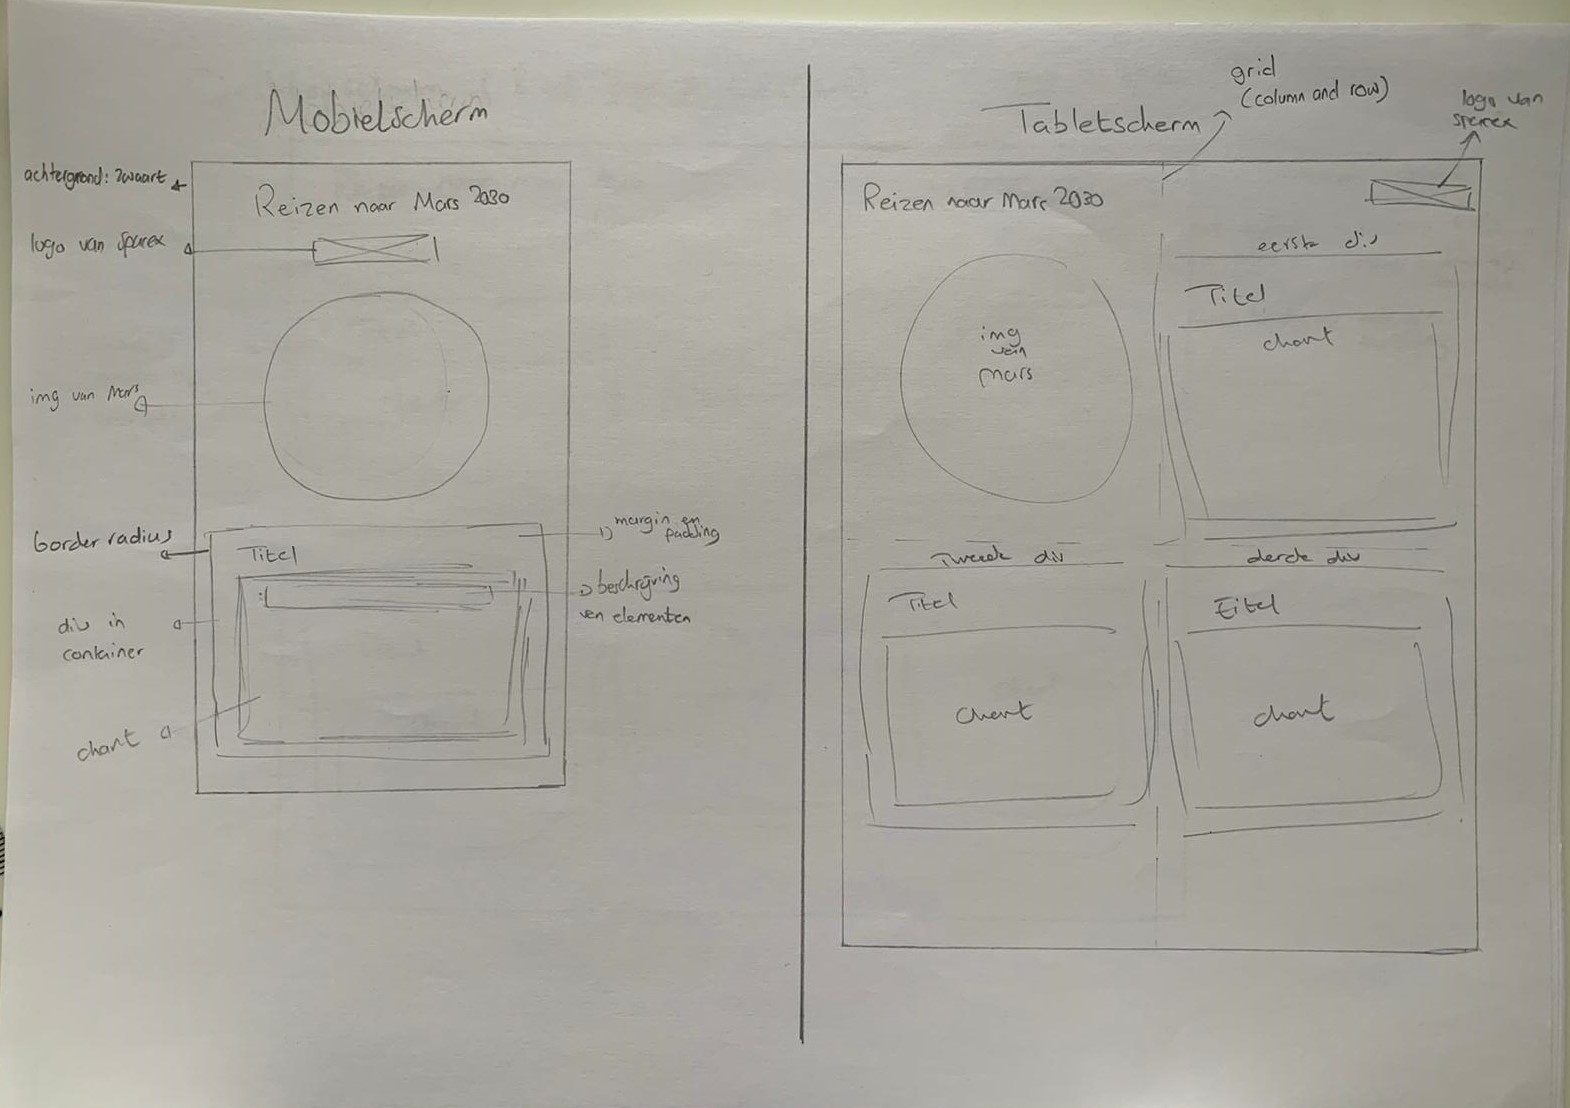 Mobielscherm
achtergrond: zwaart
Reizen naar Mars 2030
logo van Sparex
img van Mars
border radius
margin en
padding
Titel
beschrijving
van elementen
div in
container
chart
Tabletscherm
grid
(column and row)
logo van
sparex
Reizen naar Mars 2030
eerste div
Titel
chart
img
van
mars
Tweede div
derde div
Titel
Titel
chart
chart